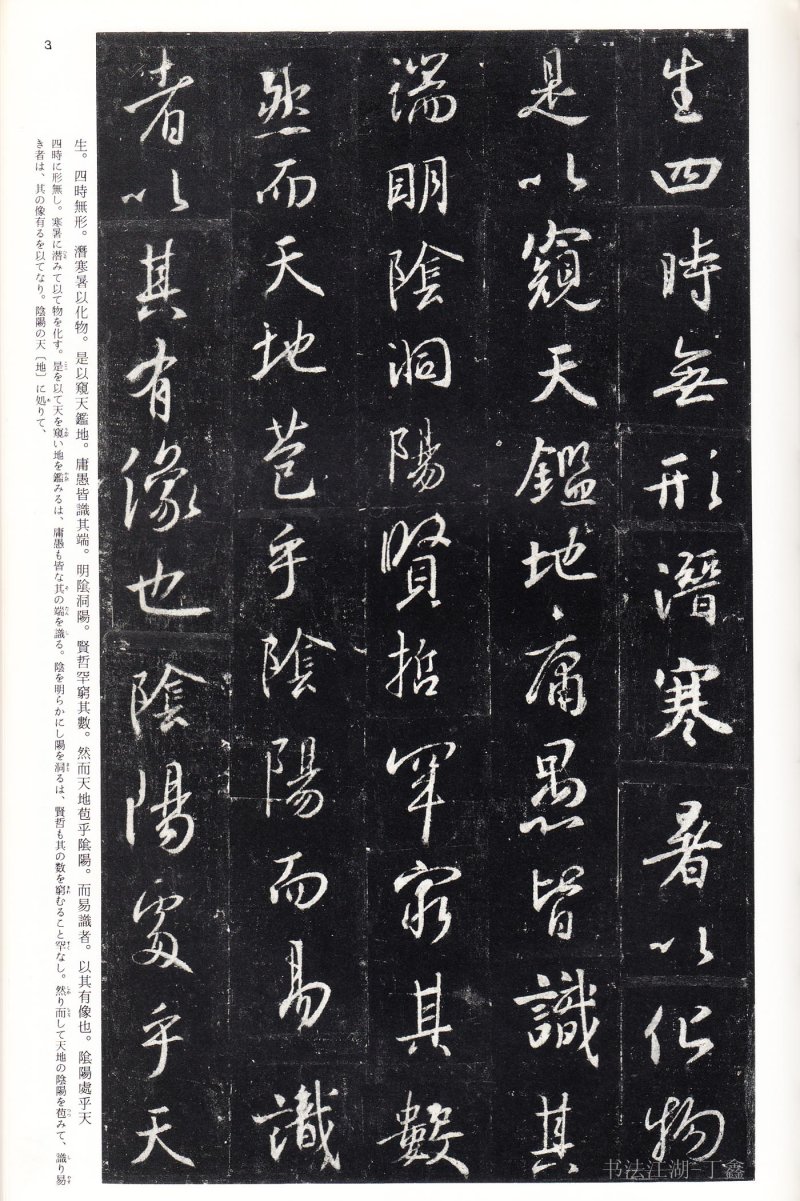 生四時無形潛寒暑以化物
是以窺天鑑地庸愚皆識其
端明陰洞陽賢哲罕窮其數
然而天地苞乎陰陽而易識
者以其有像也陰陽處乎天
生。四時無形。潛寒暑以化物。是以窺天鑑地。庸愚皆識其端。明陰洞陽。賢哲罕窮其數。然而天地苞乎陰陽。而易識者。以其有像也。陰陽處乎天
四時に形無し。寒暑に潜みて以て物を化す。是を以て天を窺い地を鑑みるは、庸愚も皆な其の端を識る。陰を明らかにし陽を洞るは、賢哲も其の数を窮むること罕なし。然り而して天地の陰陽を苞みて、識り易
き者は、其の像有るを以てなり。陰陽の天〔地〕に処りて、
3
书法江湖-丁鑫